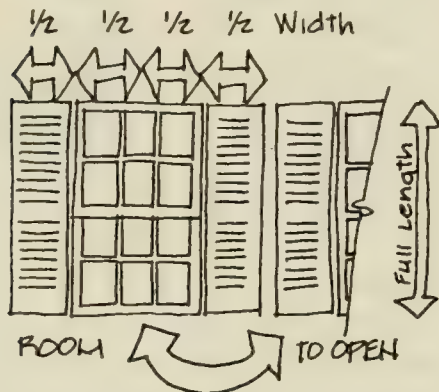 1/2 1/2 1/2 1/2 Width
Full Length
ROOM TO OPEN